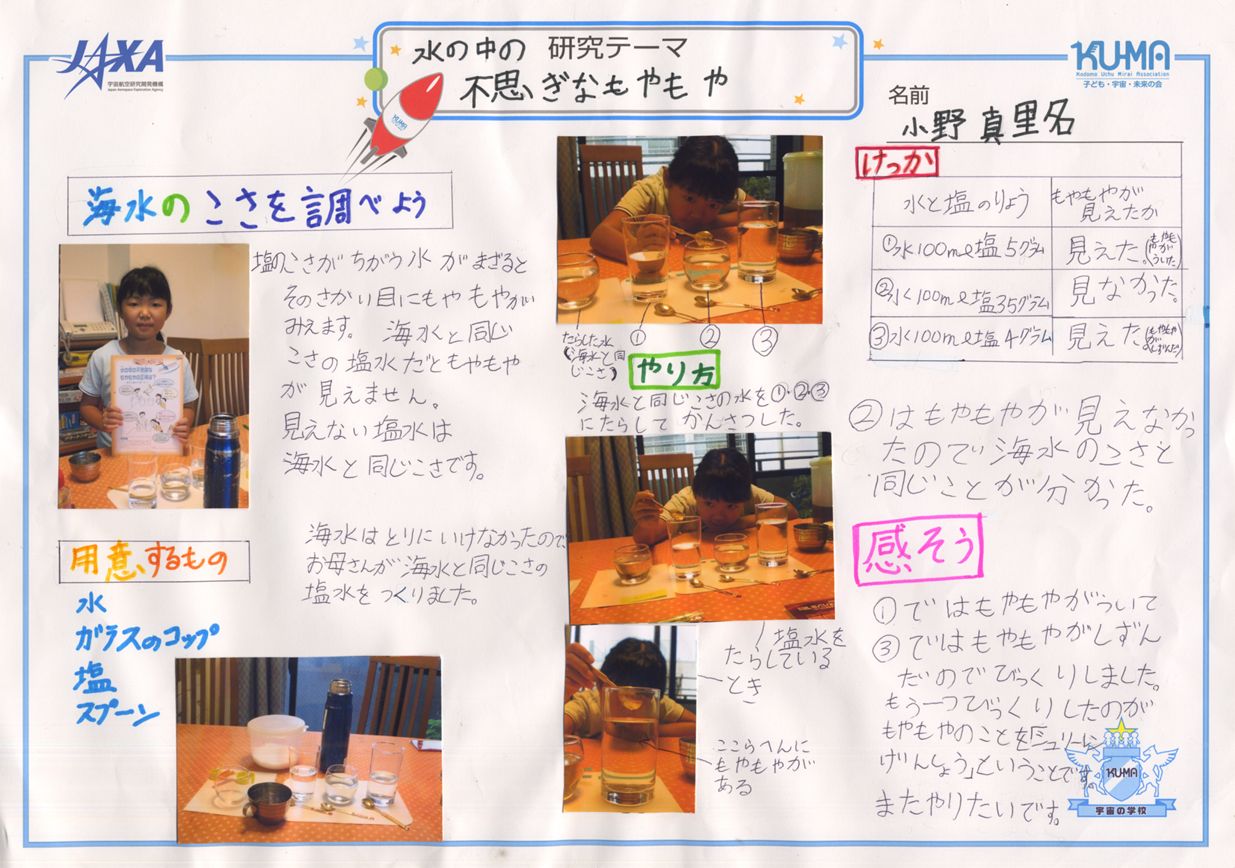 JAXA
宇宙航空研究開発機構
Japan Aerospace Exploration Agency
水の中の 研究テーマ
不思ぎなもやもや
KUMA
KUMA
Kodomo Uchu Mirai Association
子ども・宇宙・未来の会
名前
小野 真里名
海水のこさを調べよう
塩のこさがちがう水がまざると
そのさかい目にもやもやが
みえます。海水と同じ
こさの塩水だともやもや
が見えません。
見えない塩水は
海水と同じこさです。
海水はとりにいけなかったので
お母さんが海水と同じこさの
塩水をつくりました。
用意するもの
水
ガラスのコップ
塩
スプーン
たらした水
(海水と同
じこさ)
① ② ③
やり方
海水と同じこさの水を①・②・③
にたらしてかんさつした。
塩水を
たらしている
とき
ここらへんに
もやもやが
ある
けっか
水と塩のりょう
もやもやが
見えたか
①水100mℓ塩5グラム
見えた。(もやもやがういた)
②水100mℓ塩35グラム
見なかった。
③水100mℓ塩4グラム
見えた(もやもやがしずんだ)
②はもやもやが見えなかっ
たのでい海水のこさと
同じことが分かった。
感そう
①ではもやもやがういて
③ではもやもやがしずん
だのでびっくりしました。
もう一つびっくりしたのが
もやもやのことを「シュリーレン
げんしょう」ということです。
またやりたいです。
KUMA
宇宙の学校